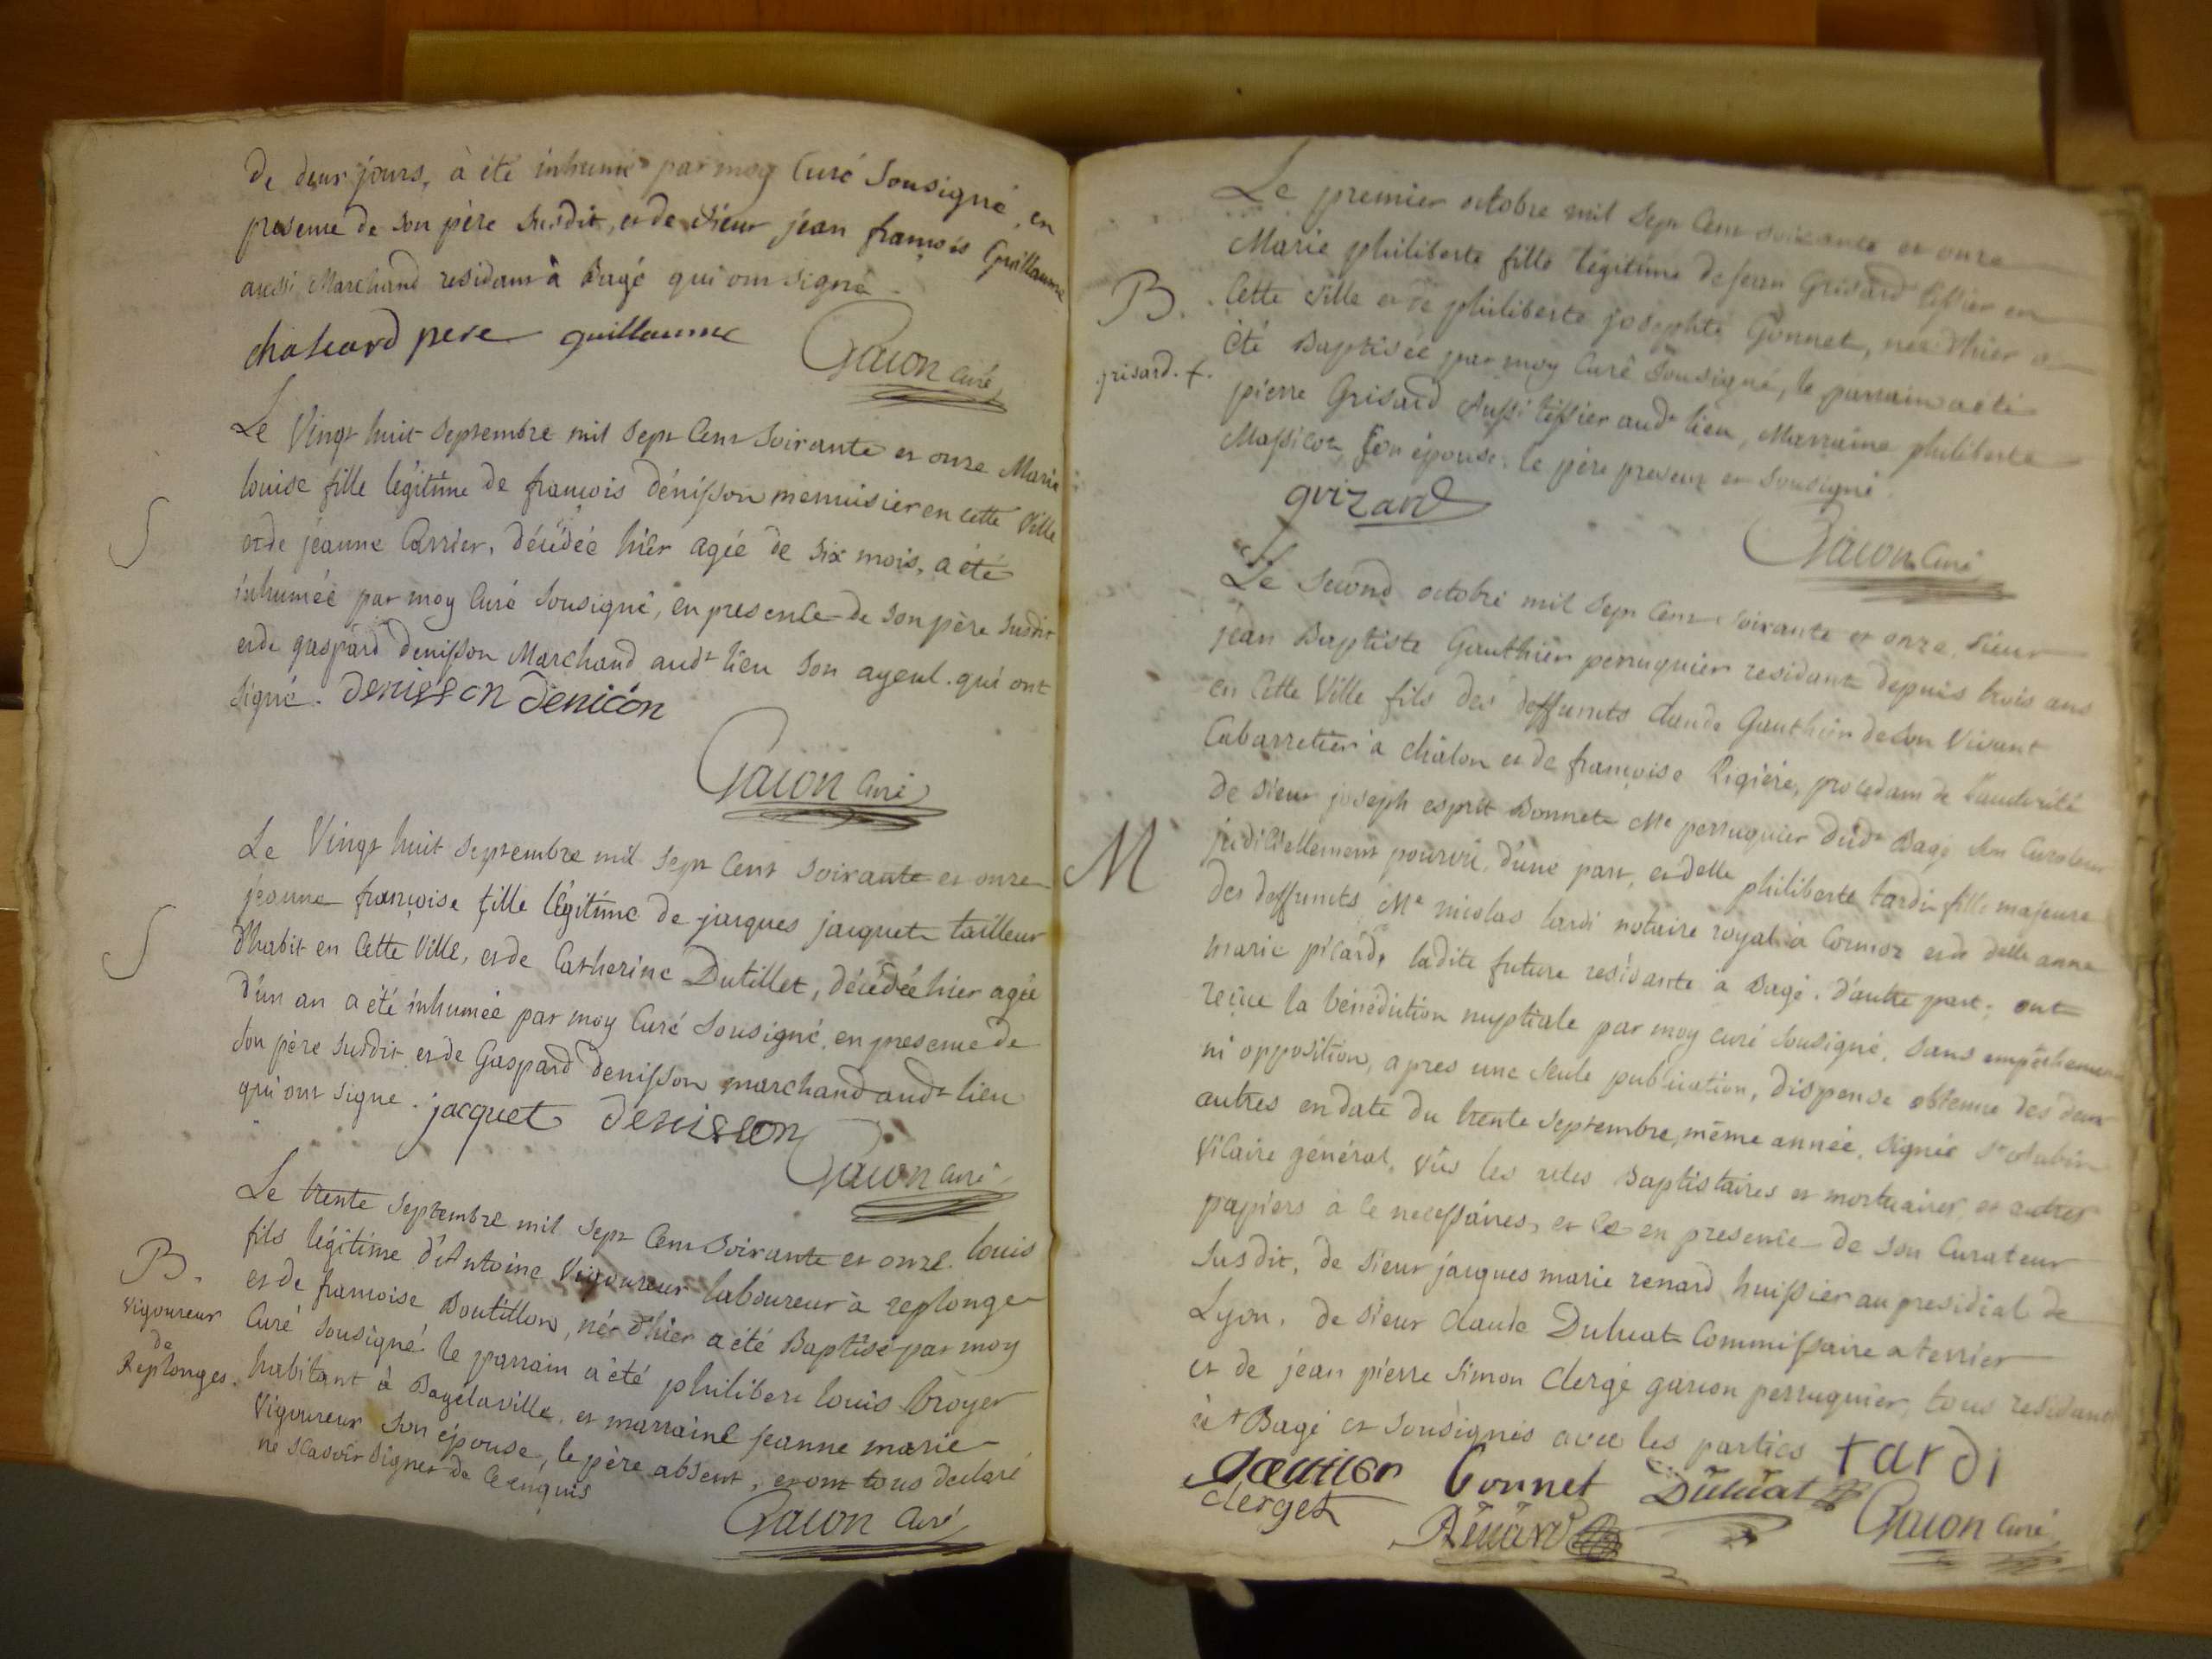 de deux jours, à été inhumé par moy Curé Sousigné, en
presence de Son père Susdit, et de Sieur jean françois Guillaume
aussi Marchand residant à Bagé qui ont signé.
chahard pere guillaume
Gacon Curé
Le Vingt huit Septembre mil Sept Cent Soixante et onze Marie
louise fille légitime de françois dénisson menuisier en cette Ville
et de jeanne Carrier, décédée hier agée de Six mois, a été
inhumée par moy Curé Sousigné, en presence de Son père Susdit
et de gaspard denisson Marchand audt lieu Son ayeul. qui ont
Signé. denisson denicon
Gacon Curé
S
Le Vingt huit Septembre mil Sept Cent Soixante et onze
jeanne françoise fille légitime de jacques jacquet tailleur
d'habit en Cette Ville, et de Catherine Dutillet, décédée hier agée
d'un an a été inhumée par moy Curé Sousigné, en presence de
Son père Susdit et de Gaspard denisson marchand audt lieu
qui ont signe. jacquet denisson
Gacon Curé
S
Le trente Septembre mil Sept Cent Soixante et onze. louis
fils légitime d'Antoine Vigoureux laboureur à replonge
et de francoise Boutillon, né d'hier a été Baptisé par moy
Curé Sousigné le parrain a été philibert louis broyer
habitant à Bagélaville, et marraine jeanne marie
Vigoureux Son épouse, le père absent, et ont tous declaré
ne Scavoir Signer de Ce enquis
Gacon Curé
B.
Vigoureux
de
Replonges.
Le premier octobre mil Sept Cent Soixante et onze
Marie philiberte fille légitime de Jean Grisard tissier en
Cette Ville et de philiberte josephte Gonnet, née d'hier a
été Baptisée par moy Curé Sousigné, le parrain a été
pierre Grisard Aussi tissier audt lieu, Marraine philiberte
Massicot Son épouse. le père present et Sousigné
grizard
Gacon Curé
B.
grisard. f.
Le Second octobre mil Sept Cent Soixante et onze. Sieur
jean Baptiste Gauthier perruquier residant depuis trois ans
en Cette Ville fils des deffunts claude Gauthier de Son Vivant
Cabarretier a châlon et de françoise Rigière, procedant de l'authorité
de Sieur joseph esprit Bonnet Me perruquier dudt Bagé Son Curateur
judiciellement pourvû, d'une part, et delle philiberte tardi fille majeure
des deffunts Me nicolas tardi notaire royal à Cormoz et de delle anne
marie picard, ladite future residante à Bagé. d'autre part; ont
reçue la bénédiction nuptiale par moy curé Sousigné, Sans empêchement
ni opposition, apres une Seule publication, dispense obtenue des deux
autres en date du trente Septembre, même année, Signée St Aubin
Vicaire général, Vûs les actes Baptistaires et mortuaires, et autres
papiers à ce necessaires, et ce en presence de Son Curateur
Susdit, de Sieur jacques marie renard huissier au presidial de
Lyon, de Sieur claude Duluat Commissaire a terrier
et de jean pierre Simon clergé garson perruquier, tous residants
à Bagé et Sousignés avec les parties tardi
Gautier Bonnet Duluat
clerget Renard Gacon Curé
M